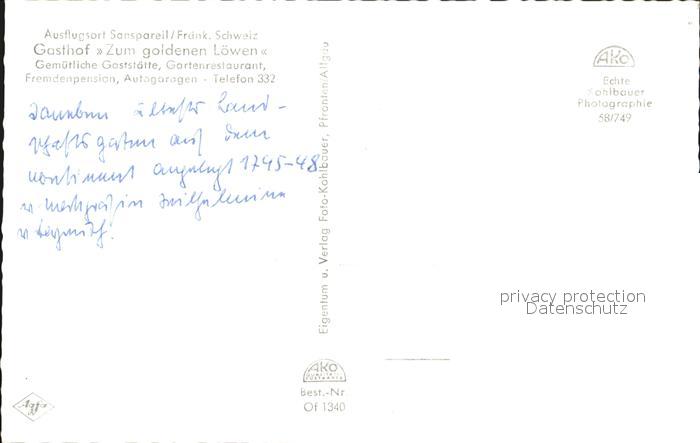 Ausflugsort Sanspareil/Fränk. Schweiz
Gasthof »Zum goldenen Löwen«
Gemütliche Gaststätte, Gartenrestaurant,
Fremdenpension, Autogaragen - Telefon 332
daneben ältester Land-
schaftsgarten auf dem
Kontinent angelegt 1745-48
v. Markgräfin Wilhelmine
v. Bayreuth!
Eigentum u. Verlag Foto-Kohlbauer, Pfronten/Allgäu
AKO
Echte
Kohlbauer
Photographie
58/749
privacy protection
Datenschutz
AKO
Best.-Nr.
Of 1340
Agfa